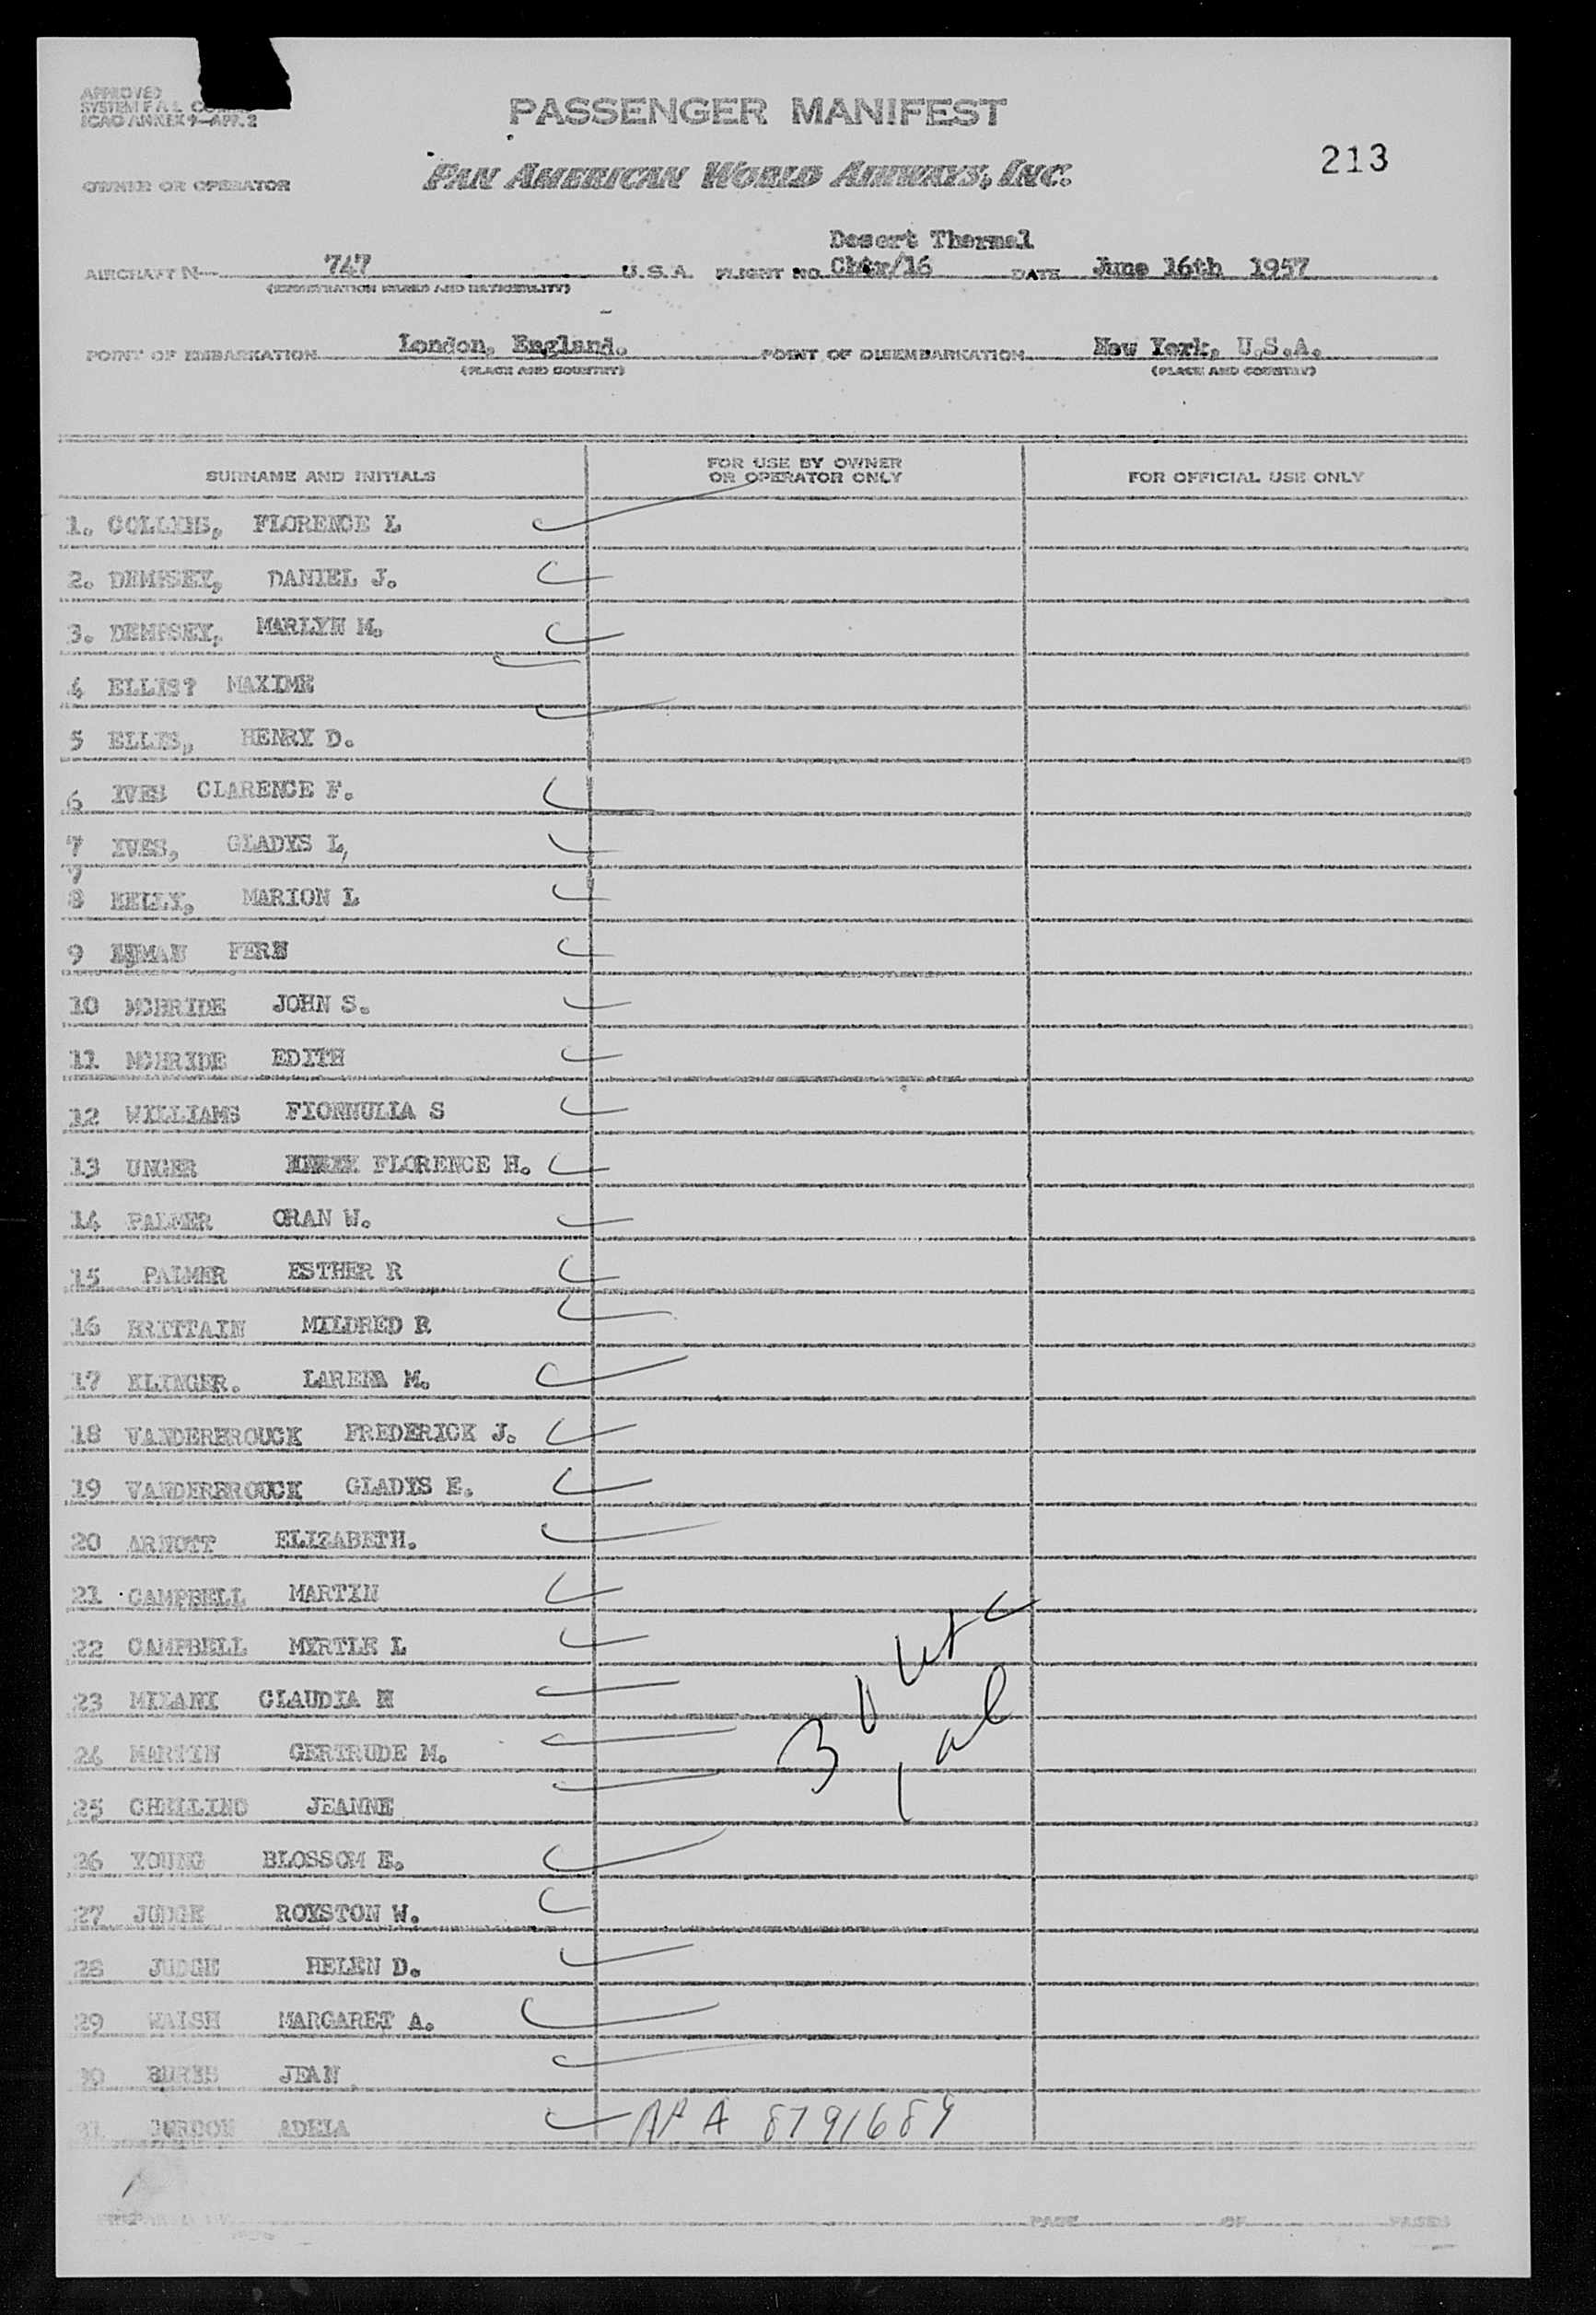 APPROVED
SYSTEM F A L
ICAO ANNEX 9—APP. 2
PASSENGER MANIFEST
213
OWNER OR OPERATOR PAN AMERICAN WORLD AIRWAYS, INC.
Desert Thermal
AIRCRAFT N— 747 U.S.A. FLIGHT NO. Chtr/16 DATE June 16th 1957
(REGISTRATION MARKS AND NATIONALITY)
POINT OF EMBARKATION London, England. POINT OF DISEMBARKATION New York, U.S.A.
(PLACE AND COUNTRY) (PLACE AND COUNTRY)
SURNAME AND INITIALS
FOR USE BY OWNER
OR OPERATOR ONLY
FOR OFFICIAL USE ONLY
1. FLORENCE L
2. DEMPSEY, DANIEL J.
3. DEMPSEY, MARLYN M.
4 ELLIS? MAXIME
5 ELLIS, HENRY D.
6 IVES CLARENCE F.
7 IVES, GLADYS L,
8 KELLY, MARION L
9 FERN
10 MCBRIDE JOHN S.
11 MCBRIDE EDITH
12 WILLIAMS FIONNULIA S
13 UNGER FLORENCE H.
14 PALMER ORAN W.
15 PALMER ESTHER R
16 BRITTAIN MILDRED R
17 KLINGER. LARENA M.
18 VANDERBROUCK FREDERICK J.
19 VANDERBROUCK GLADYS E.
20 ARNOTT ELIZABETH.
21 CAMPBELL MARTIN
22 CAMPBELL MYRTLE L
23 MILANI CLAUDIA N
24 MARTIN GERTRUDE M.
25 JEANNE
26 YOUNG BLOSSOM E.
27 JUDGE ROYSTON W.
28 JUDGE HELEN D.
29 WALSH MARGARET A.
30 JEAN
31 ADELA AR A 8791689
30 usc
1 al
PAGE OF PAGES